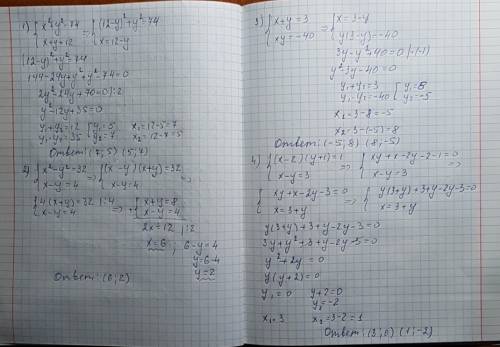 1) { x²+y²=74 ⇒ { (12-y)²+y²=74
{ x+y=12 { x=12-y
(12-y)²+y²=74
144-24y+y²+y²-74=0
2y²-24y+70=0 |:2
y²-12y+35=0
y₁+y₂=12 [ y₁=5 x₁=12-5=7
y₁·y₂=35 [ y₂=7 x₂=12-7=5
Ответ: (7;5) (5;7)
2) { x²-y²=32 ⇒ { (x-y)(x+y)=32 ⇒
{ x-y=4 { x-y=4
{ 4(x+y)=32 |:4 ⇒ { x+y=8
{ x-y=4 { x-y=4
2x=12 |:2
x=6, 6-y=4
y=6-4
y=2
Ответ: (6;2)
3) { x+y=3 ⇒ { x=3-y
{ xy=-40 { y(3-y)=-40
3y-y²+40=0 |·(-1)
y²-3y-40=0
y₁+y₂=3 [ y₁=8
y₁·y₂=-40 [ y₂=-5
x₁=3-8=-5
x₂=3-(-5)=8
Ответ: (-5;8) (8;-5)
4) { (x-2)(y+1)=1 ⇒ { xy+x-2y-2-1=0 ⇒
{ x-y=3 { x-y=3
{ xy+x-2y-3=0 ⇒ { y(3+y)+3+y-2y-3=0
{ x=3+y { x=3+y
y(3+y)+3+y-2y-3=0
3y+y²+3+y-2y-3=0
y²+2y=0
y(y+2)=0
y₁=0 y+2=0
y₂=-2
x₁=3 x₂=3-2=1
Ответ: (3;0) (1;-2)